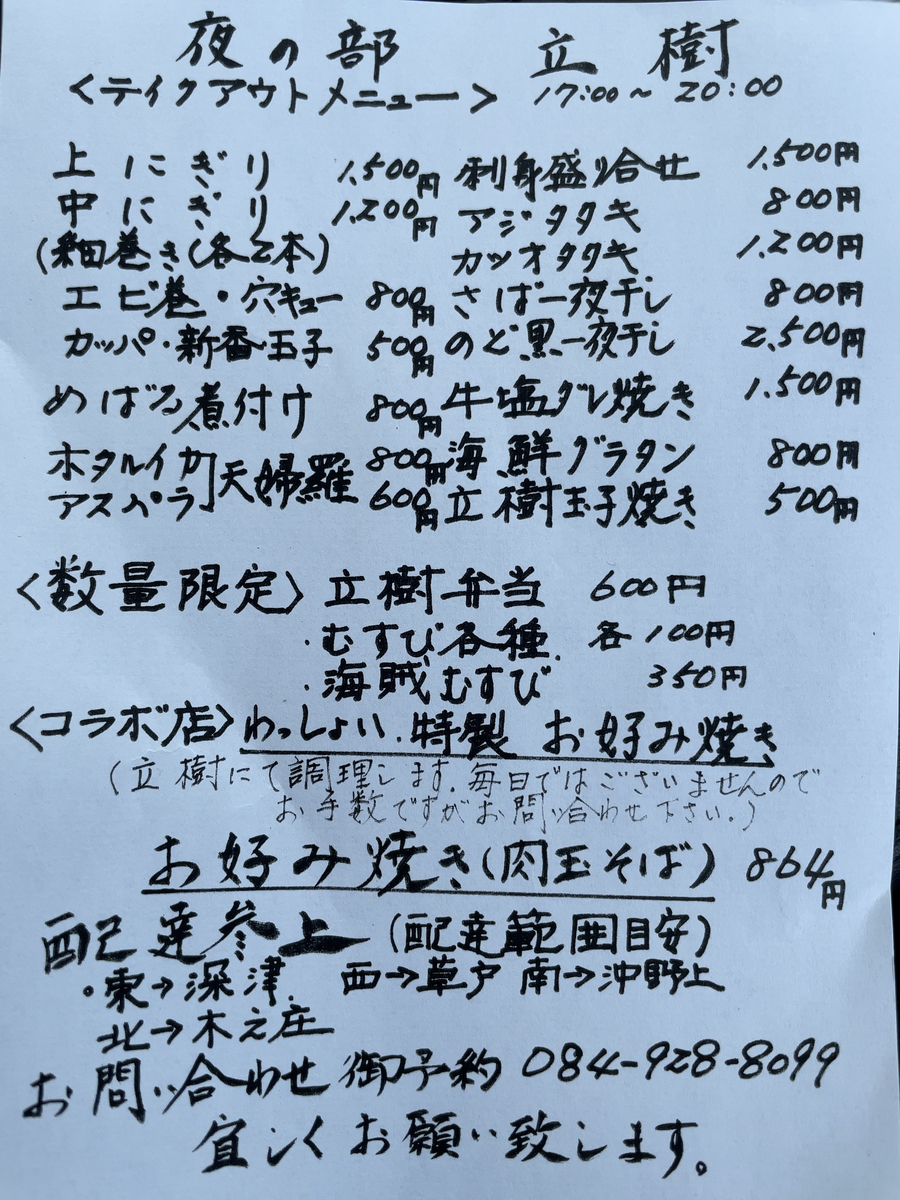 夜の部 立樹
<テイクアウトメニュー> 17:00~20:00
上にぎり 1,500円 刺身盛り合せ 1,500円
中にぎり 1,200円 アジタタキ 800円
(細巻き(各2本) カツオタタキ 1,200円
エビ巻・穴キュー 800円 さば一夜干し 800円
カッパ・新香・玉子 500円 のど黒一夜干し 2,500円
めばる煮付け 800円 牛塩ダレ焼き 1,500円
ホタルイカ 天婦羅 800円 海鮮グラタン 800円
アスパラ 600円 立樹玉子焼き 500円
<数量限定> 立樹弁当 600円
・むすび各種 各100円
・海賊むすび 350円
<コラボ店> わっしょい.特製 お好み焼き
(立樹にて調理します.毎日ではございませんので
お手数ですがお問い合わせ下さい。)
お好み焼き(肉玉そば) 864円
配達参上 (配達範囲目安)
・東→深津 西→草戸 南→沖野上
北→木之庄
お問い合わせ 御予約 084-928-8099
宜しくお願い致します。